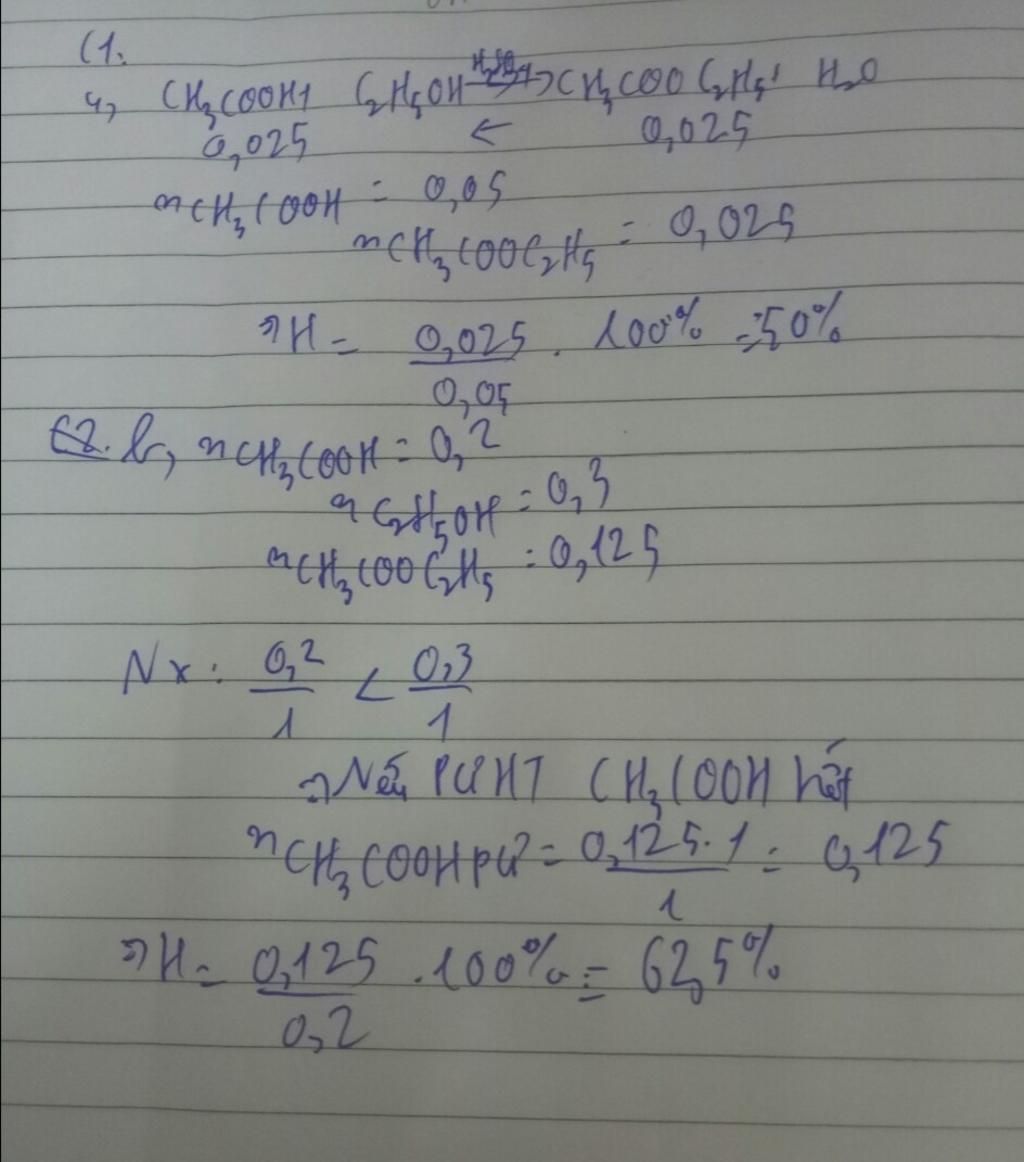 C1.
a, CH3COOH + C2H5OH H2SO4→ CH3COOC2H5 + H2O
0,025 ← 0,025
nCH3COOH = 0,05
nCH3COOC2H5 = 0,025
⇒H = 0,025/0,05 . 100% = 50%
b, nCH3COOH = 0,2
nC2H5OH = 0,3
nCH3COOC2H5 = 0,125
Nx: 0,2/1 < 0,3/1
⇒ Nếu PƯHT CH3COOH hết
nCH3COOH pứ = 0,125.1/1 = 0,125
⇒H = 0,125/0,2 .100% = 62,5%